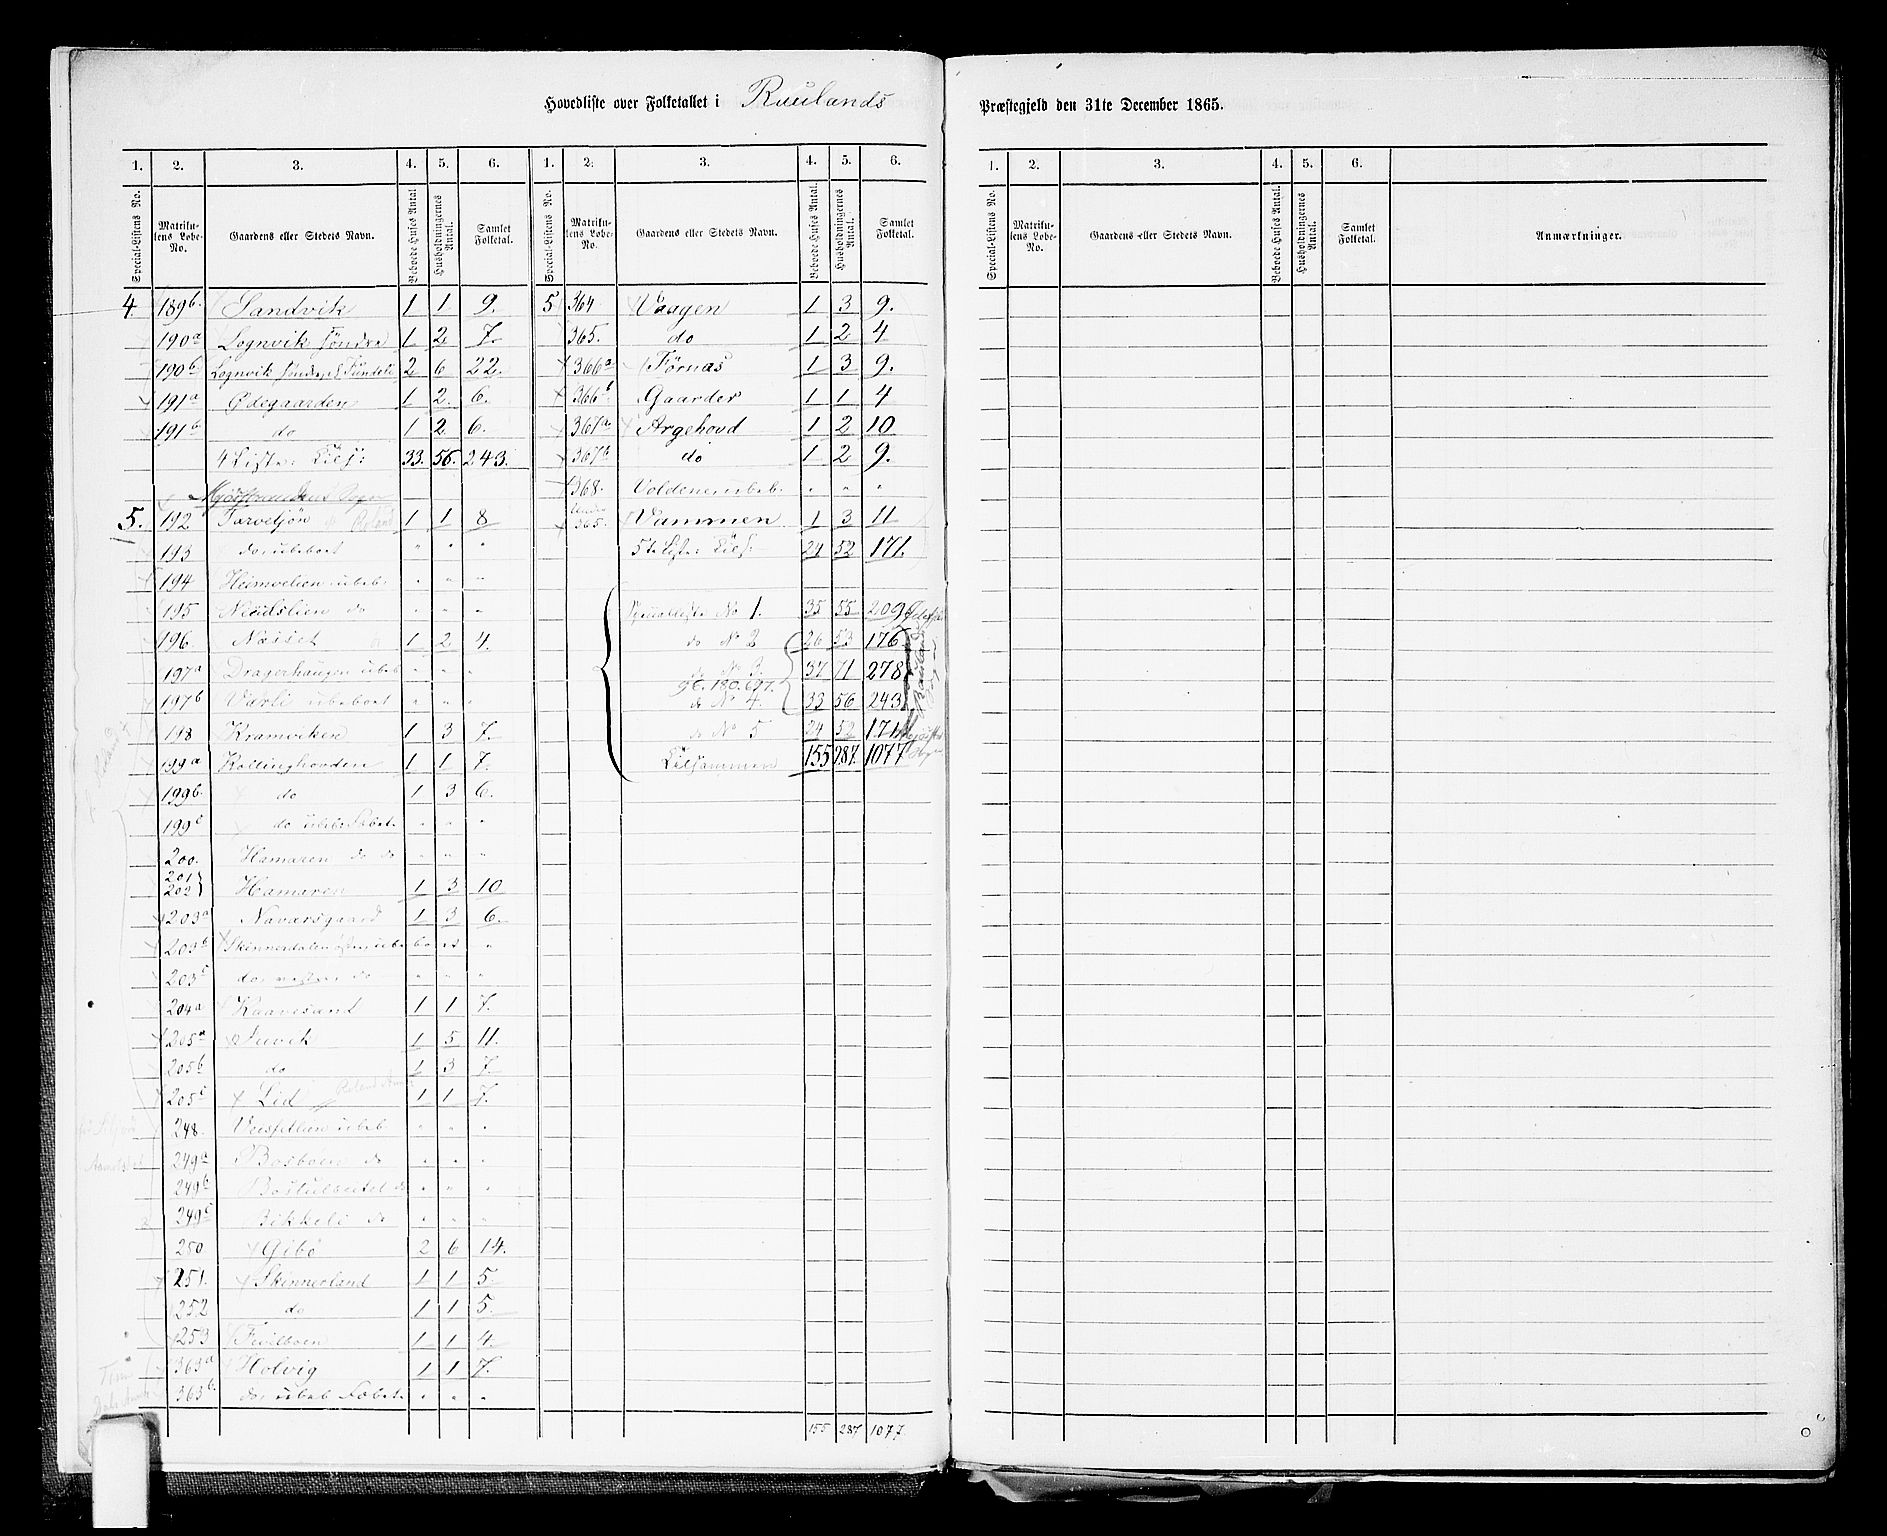 Hovedliste over Folketallet i Raulands Præstegjeld den 31te December 1865.
1. 2. 3. 4. 5. 6. 1. 2. 3. 4. 5. 6.
Special-Listens No. Matrikulens Løbe-No. Gaardens eller Stedets Navn. Beboede Huses Antal. Husholdningernes Antal. Samlet Folketal. Special-Listens No. Matrikulens Løbe-No. Gaardens eller Stedets Navn. Beboede Huses Antal. Husholdningernes Antal. Samlet Folketal.
4. 189b. Sandvik 1 1 9.
190a Lognvik søndre 1 2. 7.
190b Lognvik søndre, 2 6 22.
191a Ødegaarden 1 2. 6.
191b do 1 2 6.
4 Liste: Tils: 33. 56. 243.
Mjøsstrandens Sogn
5. 192 Tarvetjøn 1 1 8
193 do, ubeboet " " "
194 Heimvelien ubeb. " " "
195 do " " "
196. Næsset 1 2 4.
197a Dragerhaugen ubeb " " "
197b Varli ubeboet " " "
198 Kramviken 1 3 7.
199a Kollinghovden 1 1 7.
199b. do 1 3 6.
199c do ubeb: " " "
200. Hamaren do do " " "
201 202} Hamaren 1 3 10
203a Naværsgaard 1 3 6.
203b Skinnerdalen ubeboet "
203c do, do " " "
204a Kaavesand 1 1 7.
205a 1 5 11.
205b do 1 3 7.
205c Lid 1 1 7.
248. ubeb " " "
249a Bosbøen do " " "
249b do " " "
249c Bikkeli do " " "
250 Gibø 2 6 14.
251. Skinnerland 1 1 5.
252 do 1 1 5.
253 1 1 4.
363a Holvig 1 1 7.
363b. do, ubeb " " "
5 364 Vaagen 1 3 9.
365. do 1 2 4
366a Førnæs 1 3 9.
366b Gaarder 1 1 4
367a Argehovd 1 2 10
367b do 1 2 9.
368. Voldene ubeb. " " "
Under 365. Vammen 1 3 11
5te Liste: Tils. 24 52 171.
Specialliste No 1. 35 55 209
do No 2 26 53 176
do No 3. 37 71 278
do No 4. 33 56 243
do No 5 24 52 171
Tilsammen 155 287. 1077
155 287 1077.
1. 2. 3. 4. 5. 6.
Special-Listens No. Matrikulens Løbe-No. Gaardens eller Stedets Navn. Beboede Huses Antal. Husholdningernes Antal. Samlet Folketal. Anmærkninger.